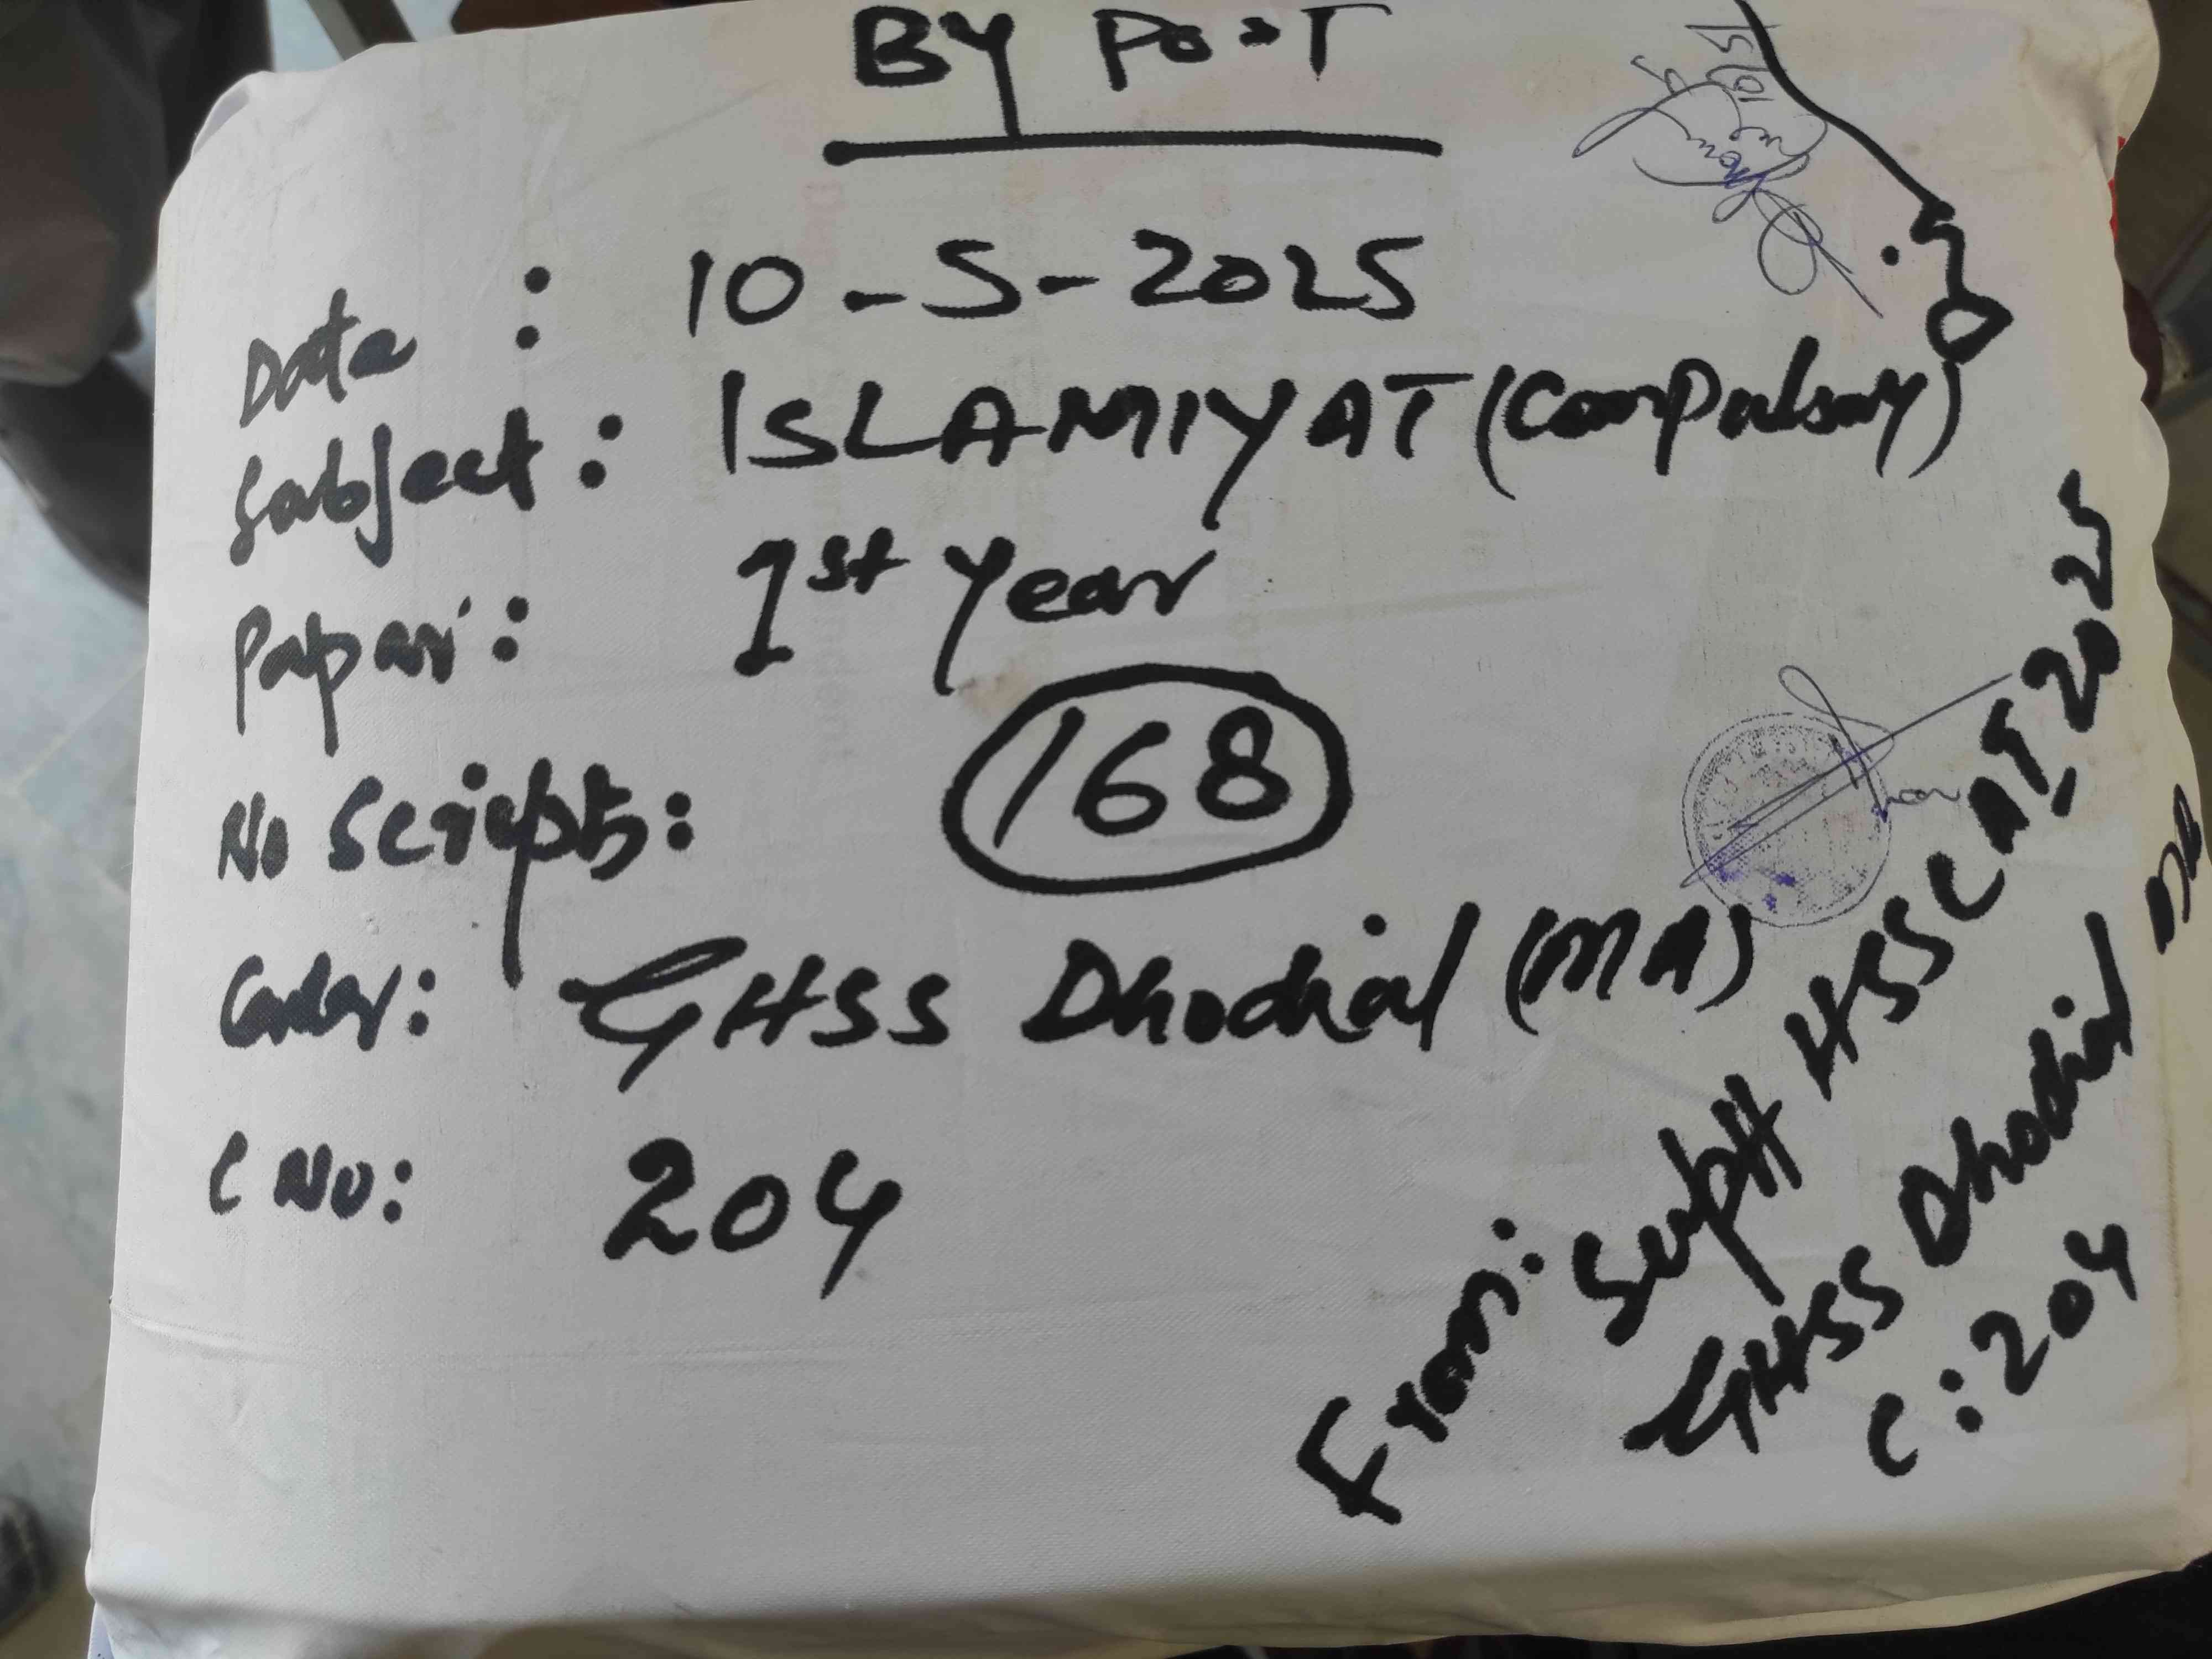 BY POST
Date : 10-5-2025
Subject : ISLAMIYAT (Compulsory)
Paper : 1st Year
No Scripts : 168
Center : GHSS Dhodial (MA)
C No : 204
From : Suptt HSSC AI 2025
GHSS Dhodial
C : 204